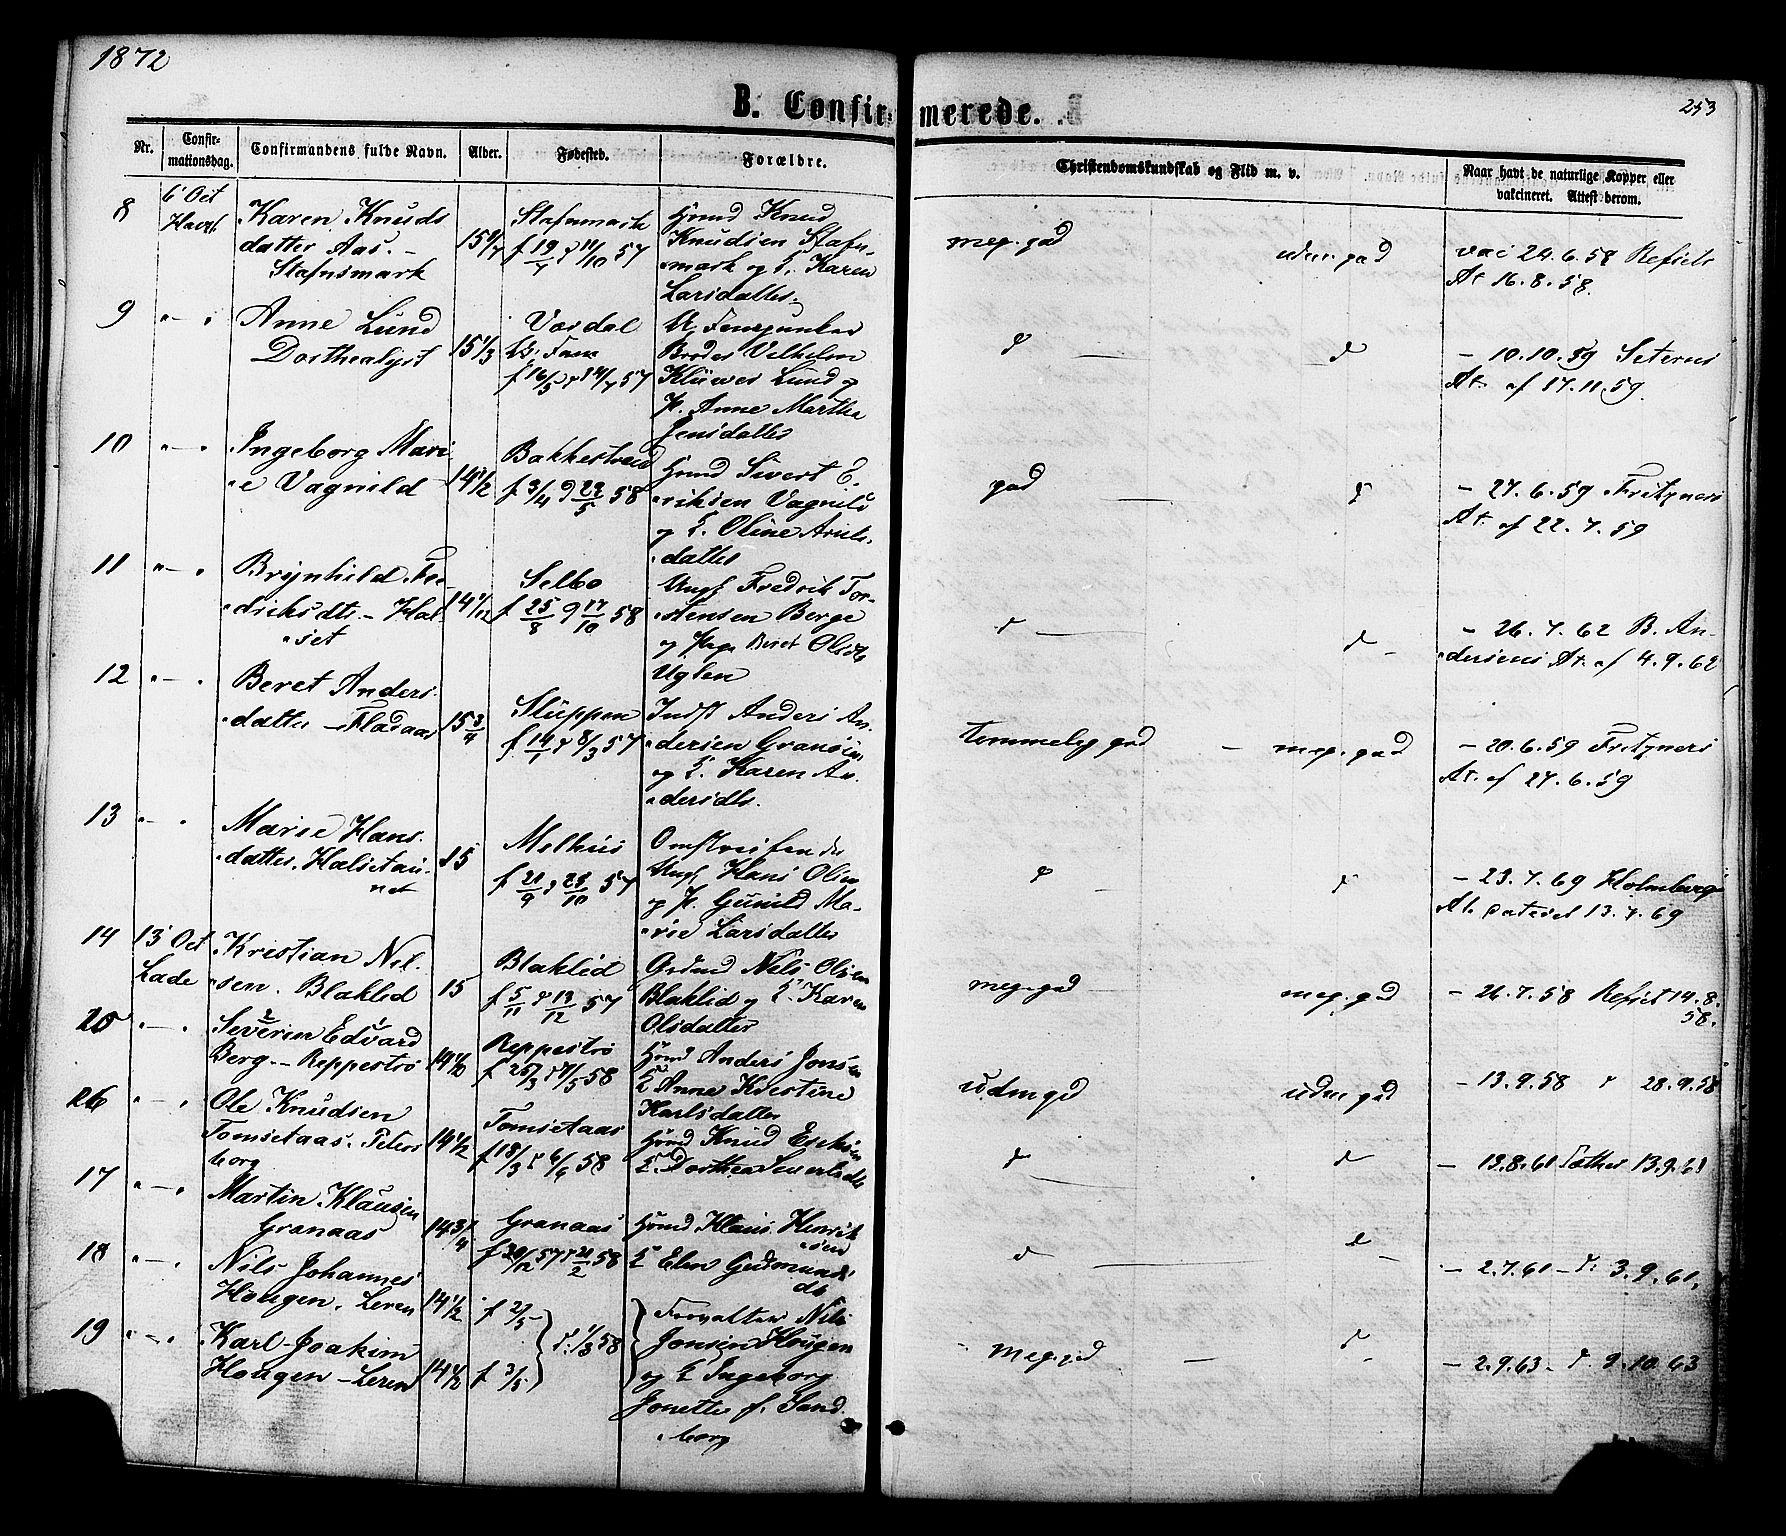 1872
253
B. Confirmerede.
Nr.
Confir-
mationsdag.
Confirmandens fulde Navn.
Alder.
Fødested.
Forældre.
Christendomskundskab og Flid m. v.
Naar havt de naturlige Kopper eller
vakcineret. Attest derom.
8
6' Oct
Karen Knuds
datter Aas. -
Stafnsmark
Stafnsmark
f 19/7 d 11/10 57
Hmd Knud
Knudsen Stafn-
mark og H. Karen
Larsdatter.
meg. god
udm. god
vac 24.6.58 Refsets
At 16.8.58.
9 " — "
Anne Lund
Dorthealyst
15 1/3
Værdal
f 16/5 d 14/7 57
Klüwer Lund og
P. Anne Martha
Jensdatter
d — d
- 10.10.59 Seterus
At. af 17.11.59.
10 " — "
Ingeborg Mari-
e Vagnild
14 1/2
Bakkestrand
f 3/4 d 24/5 58
Hmd Sivert E-
riksen Vagnild
og H. Oline Arnts-
datter
god — d
- 27.6.59 Fritzners
At. af 22.7.59
11 " — "
Brynhild Fre-
driksdtr. - Hal-
set
14 1/12
Selbo
f 25/8 d 17/10 58
Ungk Fredrik Tor-
stensen Berge
og Pige Beret Olsdtr
Uglen
d — d -
- 26.7.62 B. An-
dersens At. af 4.9.62
12 " — "
Beret Anders-
datter - Fladaas
15 3/4
Sluppen
f 14/1 d 8/3 57
Indst Anders An-
dersen Granaas
og H. Karen An-
dersdtr.
temmelig god - meg. god
- 20.6.59 Fritzners
At. af 27.6.59
13 " — "
Marie Hans-
datter. Halsetau-
net
15
Melhus
f 21/9 d 25/10 57
Omstreifende
Ungk Hans Olsen
og P. Gunild Ma-
rie Larsdatter
d — d
- 23.7.69 Holmbergs
At. dateret 13.7.69
14 13' Oct
Lade
Kristian Nil-
sen. Blaklid
15
Blaklid
f 5/11 d 13/12 57
Grdmd Nils Olsen
Blaklid og H. Karen
Olsdatter
meg. god — meg. god
- 26.7.58 Refset 14.8.
58.
20 " — "
Severin Edvard
Berg. - Reppestrø
14 1/2
Reppestrø
f 25/3 d 4/5 58
Hmd Anders Jonsen
H Anne Kristine
Karlsdatter
udm god udm god
- 13.9.58 d 28.9.58
26 " — "
Ole Knudsen
Tomsetaas. Peters-
borg
14 1/2
Tomsetaas
f 18/3 d 6/6 58
Hmd Knud Eriksen
H. Dorthea Siversdtr
d — d
- 13.8.61 13.9.61
17 " — "
Martin Klausen
Granaas
14 3/4
Granaas
f 20/12 57 d 21/2 58
Hmd Klaus Henrik-
sen
H Elen Gudmunds-
dtr
d — d -
- 2.7.61 - d. 3.9.61,
18 " — "
Nils Johannes
Hougen. Leren
14 1/2
f 2/5
19 " — "
Karl Joakim
Hougen - Leren
14 1/2
f 3/5
d. 1/3 58
Forvalter Nils
Jonsen Hougen
og H Ingeborg
Jonette f. Sand-
borg
meg. gd — d
- 2.9.63 - d 9.10.63